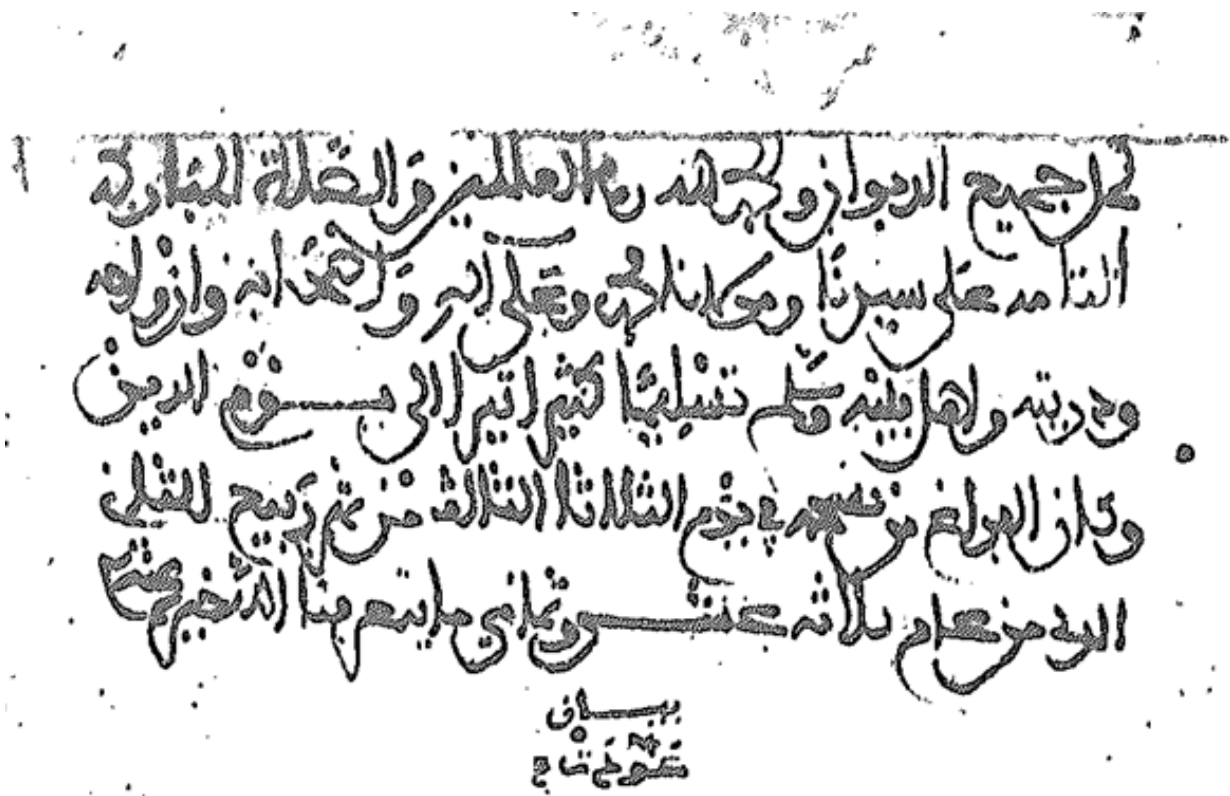 كمل جميع الديوان والحمد لله رب العلمين والصلاة المباركة
التامة على سيدنا ومولانا محمد وعلى اله وأصحابه وازواجه
وذريته واهل بيته وسلم تسليما كثيرا اثيرا الى يوم الدين
وكان الفراغ من نسخه في يوم الثلاثا الثالث من شهر ربيع الثاني
الذي من عام ثلاثة عشر وثماني ماية